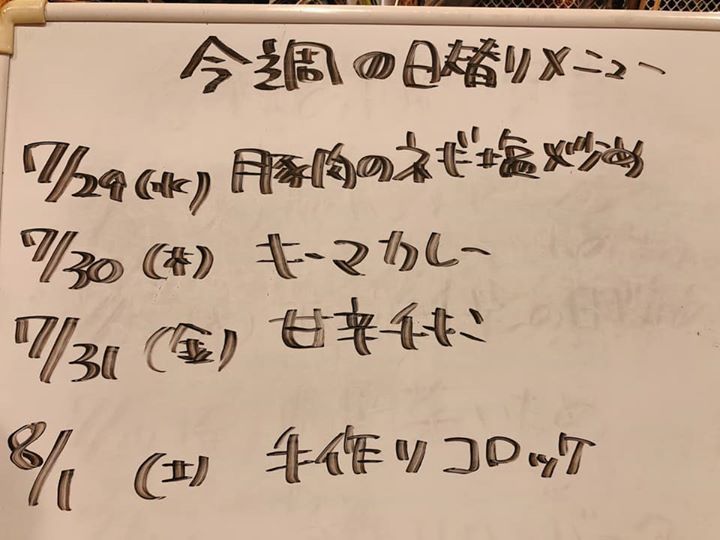 今週の日替りメニュー
7/29(水) 豚肉のネギ塩炒め
7/30(木) キーマカレー
7/31(金) 甘辛チキン
8/1(土) 手作りコロッケ